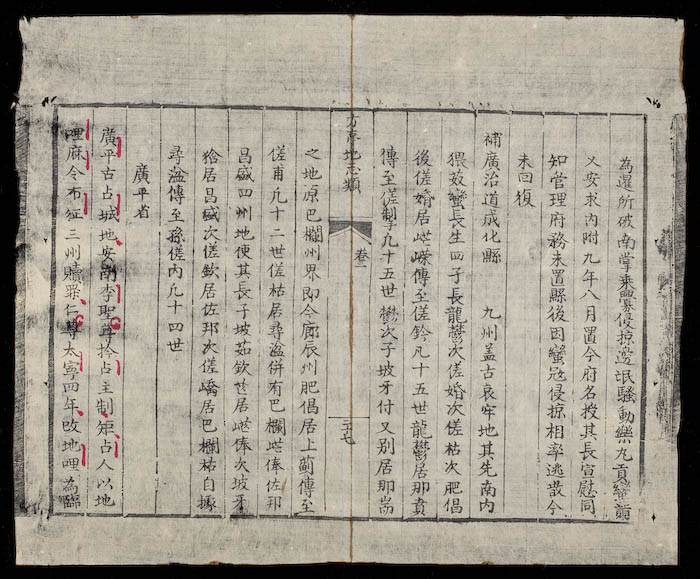 為暹所破南掌乘釁侵掠邊氓騷動樂九貢蠻頭
又安求內附九年八月置今府名授其長宣慰同
知管理府務未置縣後因蠻寇侵掠相率逃散今
未回復
補廣治道成化縣 九州盖古哀牢地其先南內
猥效蠻長生四子長龍鬱次傞婚次傞枯次肥倡
後傞婚居嵯嶸傳至傞鈐凡十五世龍鬱居那賁
傳至傞制凢十五世鬱次子坡牙付又別居那耑
方亭地志類
卷二
二十七
之地原巴欄州界即今廊辰州肥倡居上蔄傳至
傞甫凢十二世傞枯居尋湓併有巴欄嵯俸佐邦
昌盛四州地使其長子坡茹欽居嵯俸次坡牙
猞居昌盛次傞欽居佐邦次傞嶠居巴欄枯自據
尋湓傳至孫傞內凢十四世
廣平省
廣平古占城地安南李聖尊拎占主制矩占人以地
哩麻令布征三州贖罪仁尊太寧四年改地哩為臨